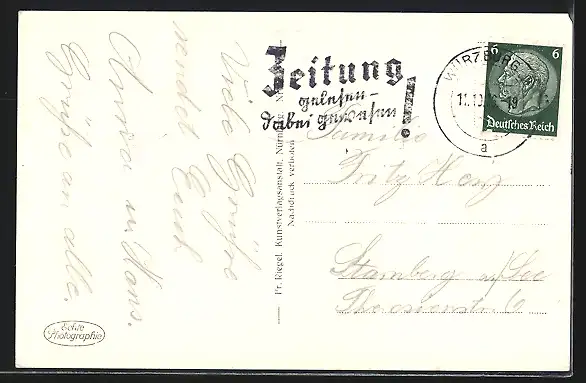 Viele Grüße
sendet Euch
Anna u. Hans.
Grüße an alle.
Echte
Photographie
Fr. Riegel, Kunstverlagsanstalt, Nürnberg
Nachdruck verboten
Zeitung
gelesen-
dabei gewesen!
WÜRZBURG
11.10.
19
a
6 6
Deutsches Reich
Familie
Fritz
Starnberg a/See